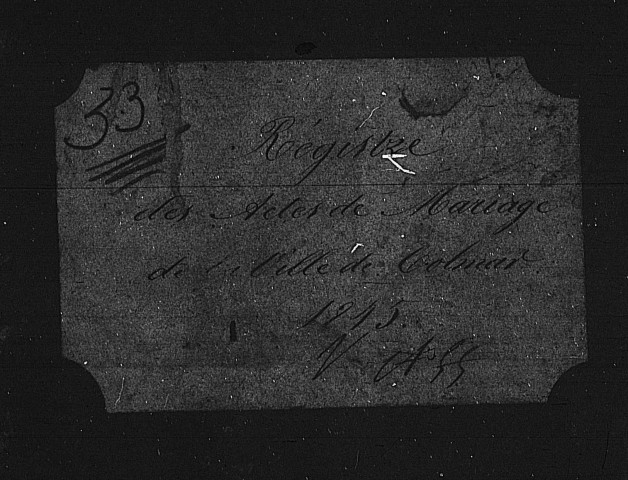 33
Régistre
des Actes de Mariage
de la Ville de Colmar
1845.
V